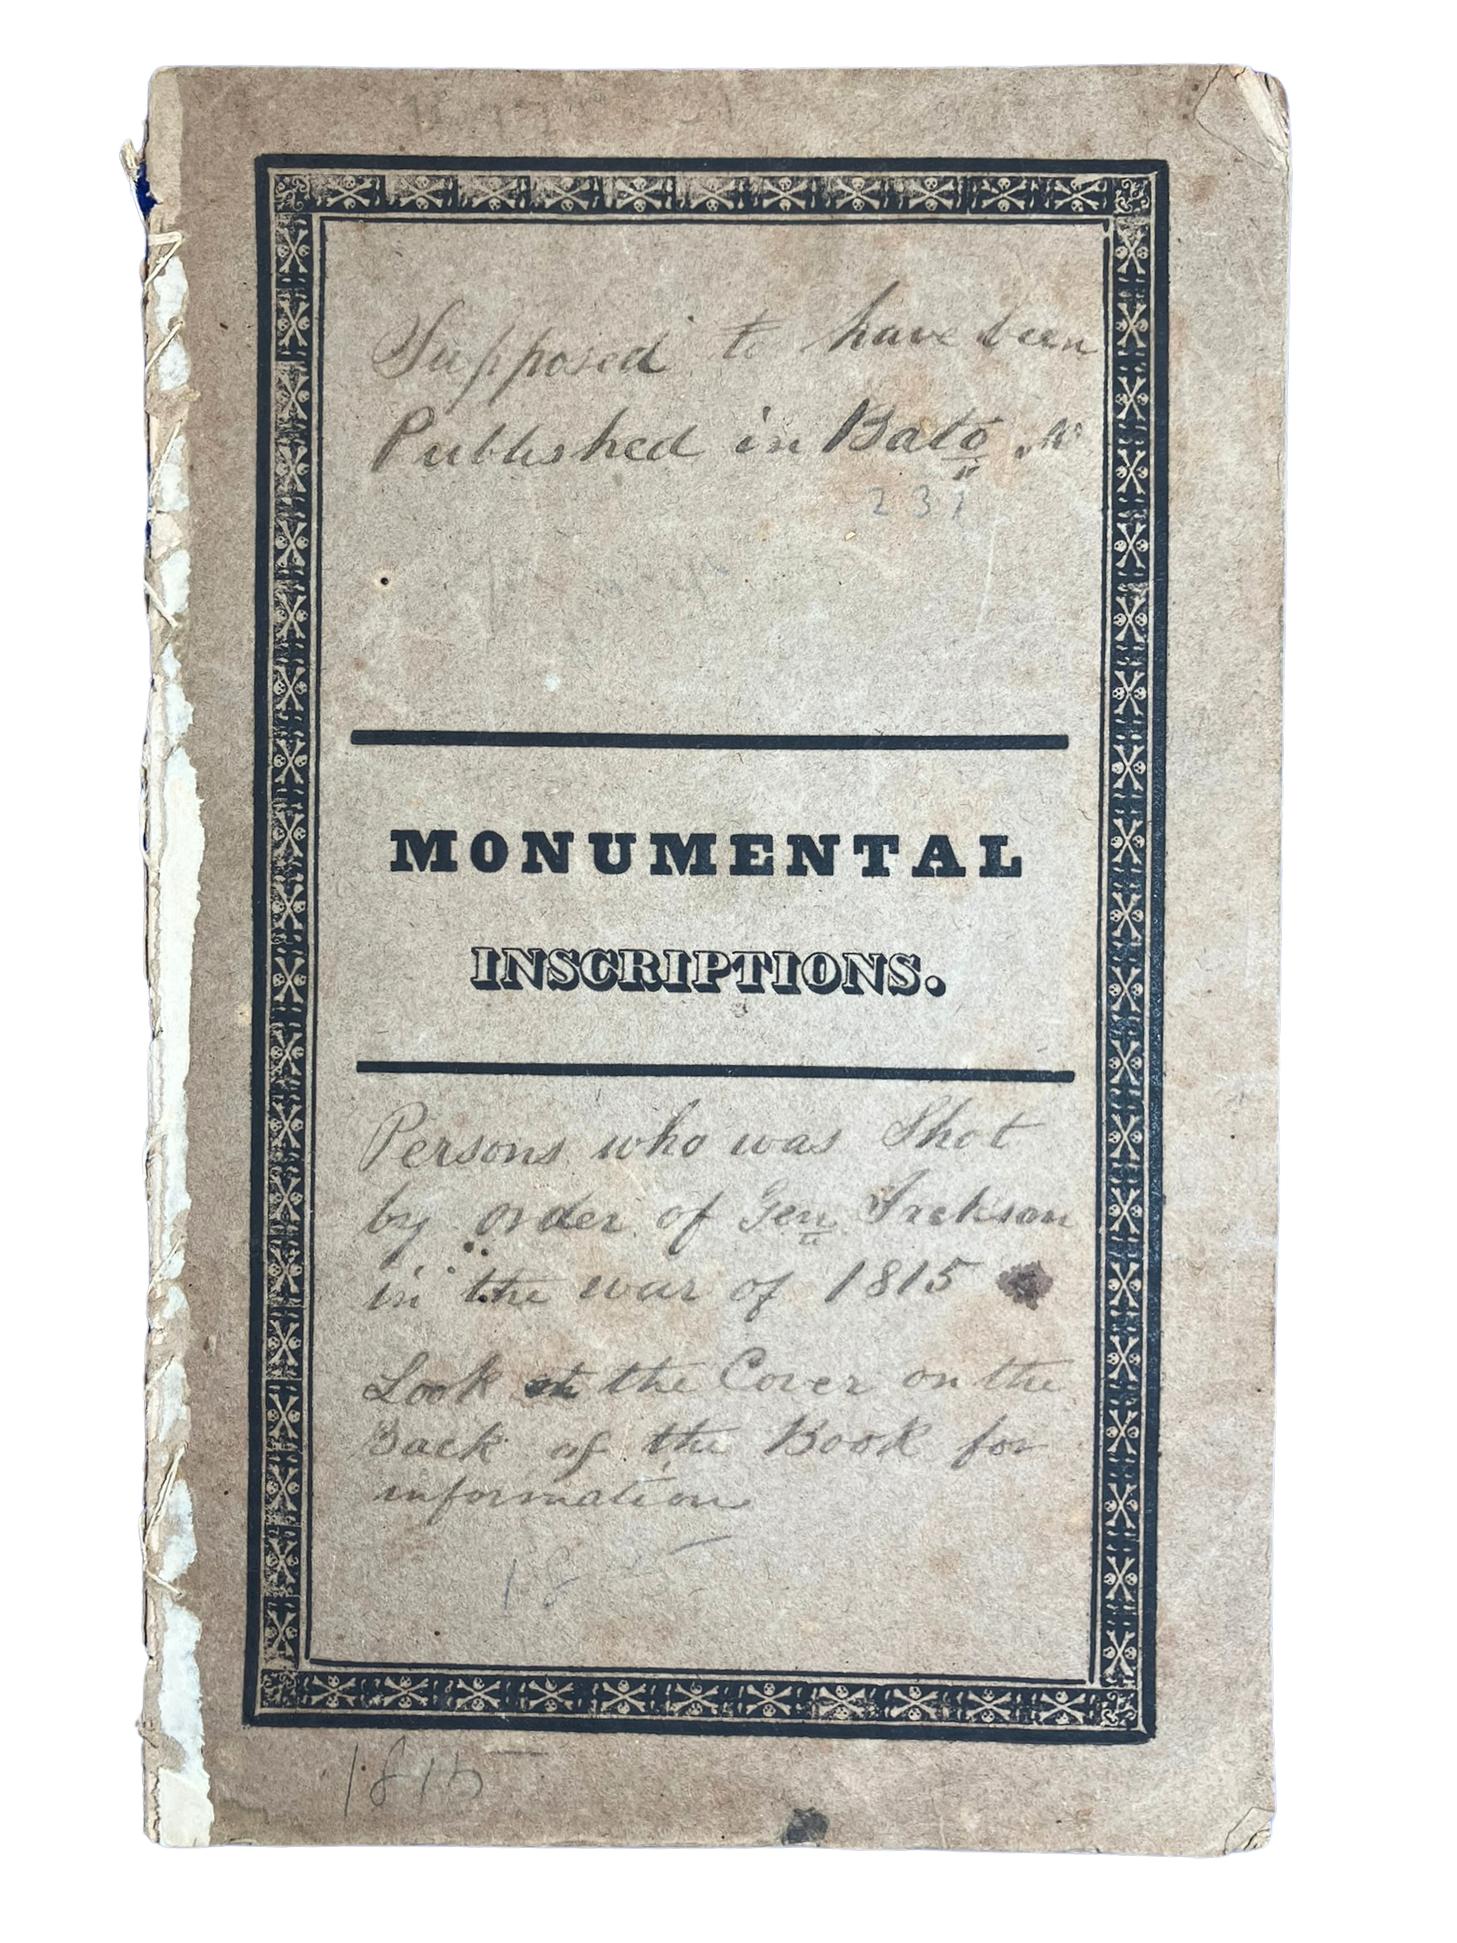 Supposed to have been
Published in Balto
231
MONUMENTAL
INSCRIPTIONS.
Persons who was Shot
by order of Gen Jackson
in the war of 1815
Look at the Cover on the
Back of the Book for
information
1815